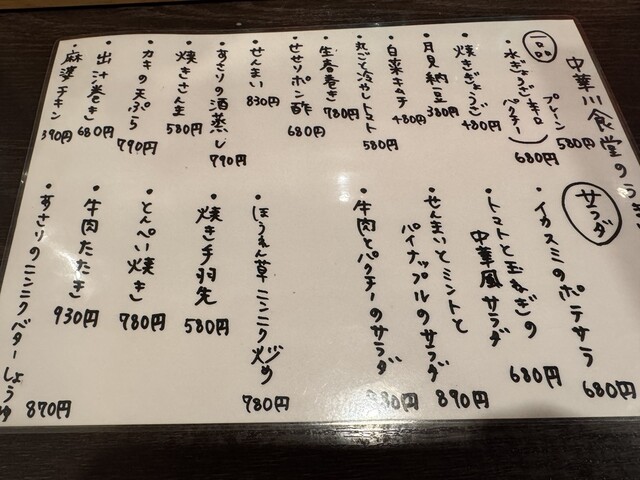 中華川食堂の
一品
水ぎょうざ
プレーン 580円
辛口
パクチー 680円
・焼きぎょうざ 480円
・月見納豆 380円
・白菜キムチ 480円
・丸ごと冷やしトマト 580円
・生春巻き 780円
・せせりポン酢 680円
・せんまい 830円
・あさりの酒蒸し 790円
・焼きさんま 580円
・カキの天ぷら 790円
・出汁巻き 680円
・麻婆チキン 390円
サラダ
・イカスミのポテサラ 680円
・トマトと玉ねぎの
中華風サラダ 680円
・せんまいとミントと
パイナップルのサラダ 890円
・牛肉とパクチーのサラダ 80円
・ほうれん草ニンニク炒め 780円
・焼き手羽先 580円
・とんぺい焼き 780円
・牛肉たたき 930円
・あさりのニンニクバターしょうゆ 870円